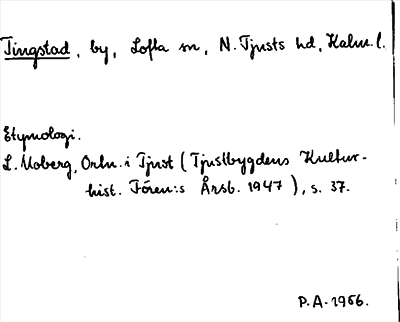 Tingstad, by, Lofta sn, N. Tjusts hd, Kalm. l.
Etymologi.
L. Moberg, Ortn. i Tjust (Tjustbygdens Kultur-
hist. Fören:s Årsb. 1947), s. 37.
P.A. 1956.